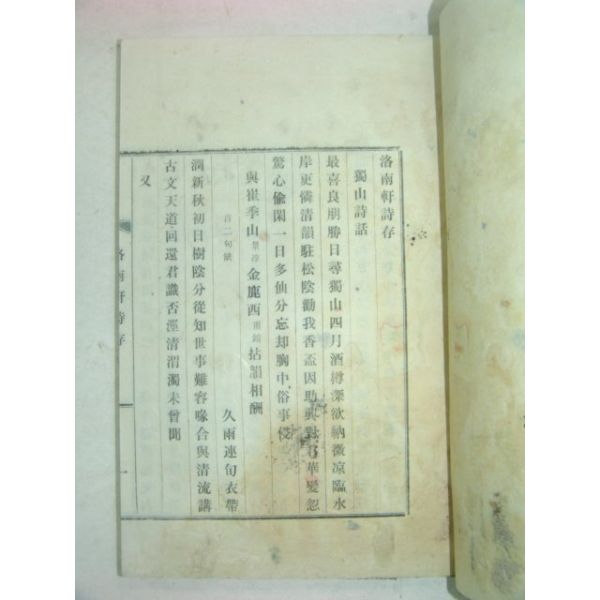 洛南軒詩存
獨山詩話
最喜良朋勝日尋獨山四月酒樽深欲納微凉臨水
岸更憐清韻駐松陰勸我香盃因助興對君華髮忽
驚心偸閑一日多仙分忘却胸中俗事侵
與崔季山 金鹿西 拈韻相酬
首二句缺 久雨連旬衣帶
潤新秋初日樹陰分從知世事難容喙合與清流講
古文天道回還君識否涇清渭濁未曾聞
又
洛南軒詩存 一